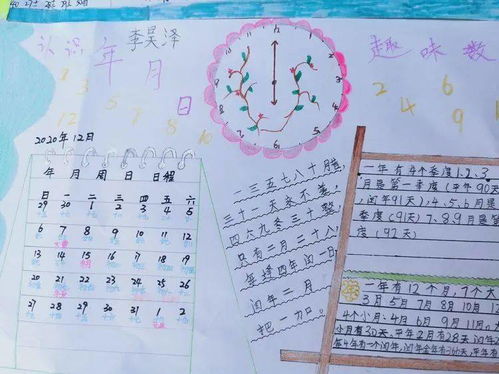 认识年月日
李昊泽
趣味数
1 3 5 7 8 10 12
2 4 6 9 11
12
6
2020年12日
年 月 周 日 日程
日 一 二 三 四 五 六
29 30 1 2 3 4 5
6 7 8 9 10 11 12
13 14 15 16 17 18 19
20 21 22 23 24 25 26
27 28 29 30 31 1 2
一三五七八十月腊,
三十一天永不差,
四六九冬三十整,
只有二月二十八,
每增四年闰一日
闰年二月
把一加。
一年有4个季度1.2.3
月是第一季度(平年90天
,闰年91天),4、5、6月是
季度(91天)7、8、9月是第
度(92天)
一年有12个月,7个大
3月5月7月8月10月12
4个小月:4月6月9月11月,大
小月有30天,平年2月有28天闰年2
每4年有一个闰年,闰年全年有366天,平年